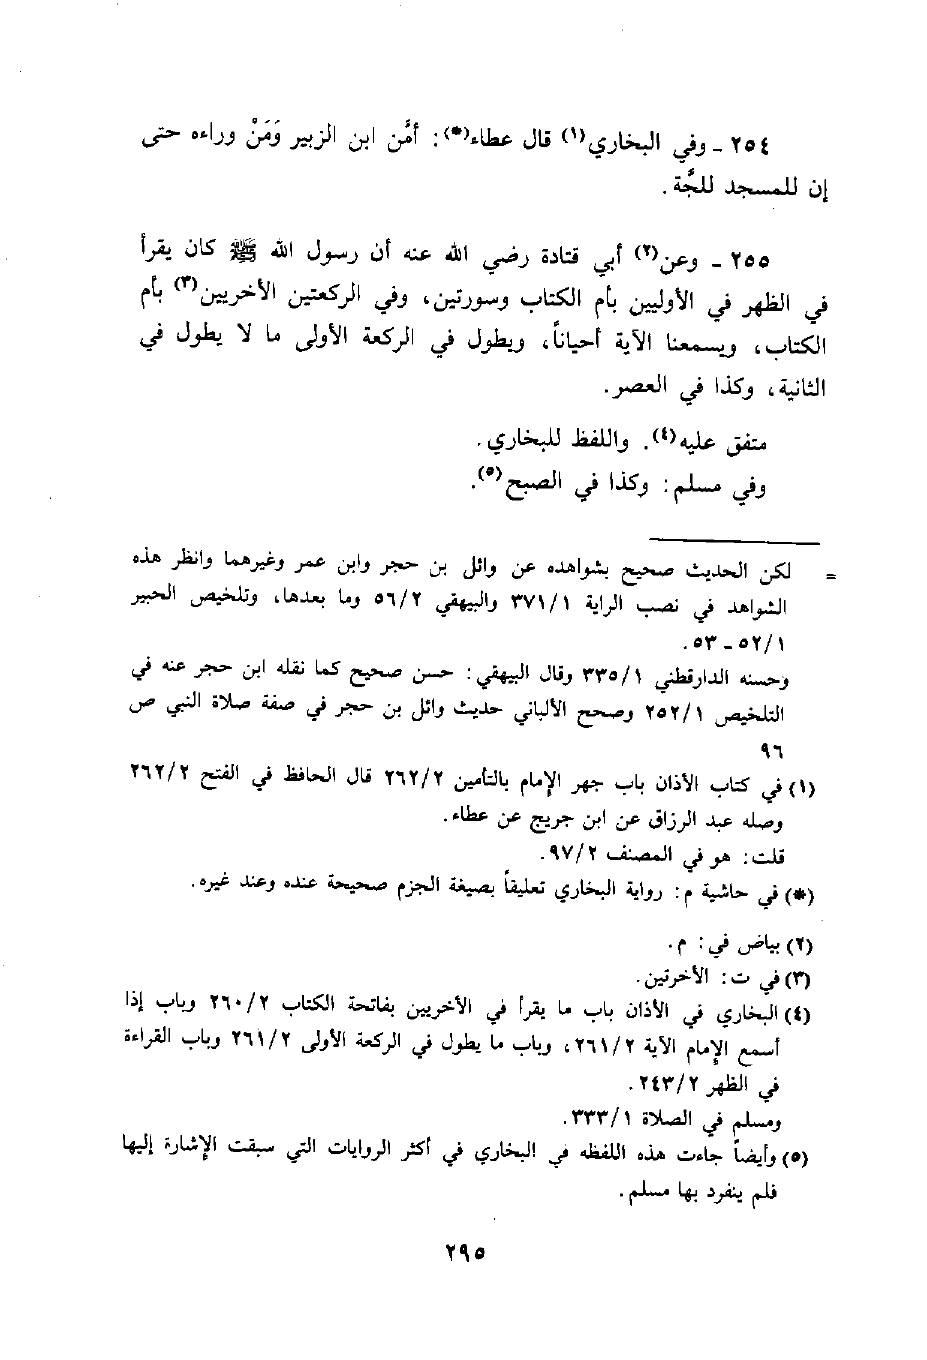 ٢٥٤ ـ وفي البخاري(١) قال عطاء(*): أمَّن ابن الزبير وَمَنْ وراءه حتى
إن للمسجد للجَّة.
٢٥٥ ـ وعن(٢) أبي قتادة رضي الله عنه أن رسول الله ﷺ كان يقرأ
في الظهر في الأوليين بأم الكتاب وسورتين، وفي الركعتين الأخريين(٣) بأم
الكتاب، ويسمعنا الآية أحياناً، ويطول في الركعة الأولى ما لا يطول في
الثانية، وكذا في العصر.
متفق عليه(٤). واللفظ للبخاري.
وفي مسلم: وكذا في الصبح(٥).
= لكن الحديث صحيح بشواهده عن وائل بن حجر وابن عمر وغيرهما وانظر هذه
الشواهد في نصب الراية ٣٧١/١ والبيهقي ٥٦/٢ وما بعدها، وتلخيص الحبير
٥٢/١ ـ ٥٣.
وحسنه الدارقطني ٣٣٥/١ وقال البيهقي: حسن صحيح كما نقله ابن حجر عنه في
التلخيص ٢٥٢/١ وصحح الألباني حديث وائل بن حجر في صفة صلاة النبي ص
٩٦
(١) في كتاب الأذان باب جهر الإمام بالتأمين ٢٦٢/٢ قال الحافظ في الفتح ٢٦٢/٢
وصله عبد الرزاق عن ابن جريج عن عطاء.
قلت: هو في المصنف ٩٧/٢.
(*) في حاشية م: رواية البخاري تعليقاً بصيغة الجزم صحيحة عنده وعند غيره.
(٢) بياض في: م.
(٣) في ت: الأخرتين.
(٤) البخاري في الأذان باب ما يقرأ في الأخريين بفاتحة الكتاب ٢٦٠/٢ وباب إذا
أسمع الإمام الآية ٢٦١/٢، وباب ما يطول في الركعة الأولى ٢٦١/٢ وباب القراءة
في الظهر ٢٤٣/٢.
ومسلم في الصلاة ٣٣٣/١.
(٥) وأيضاً جاءت هذه اللفظه في البخاري في أكثر الروايات التي سبقت الإشارة إليها
فلم ينفرد بها مسلم.
٢٩٥